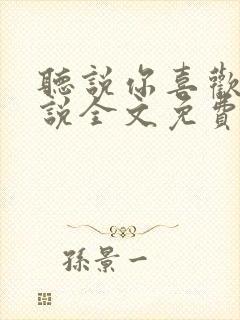 聽說你喜歡
說全文免費
孫景一